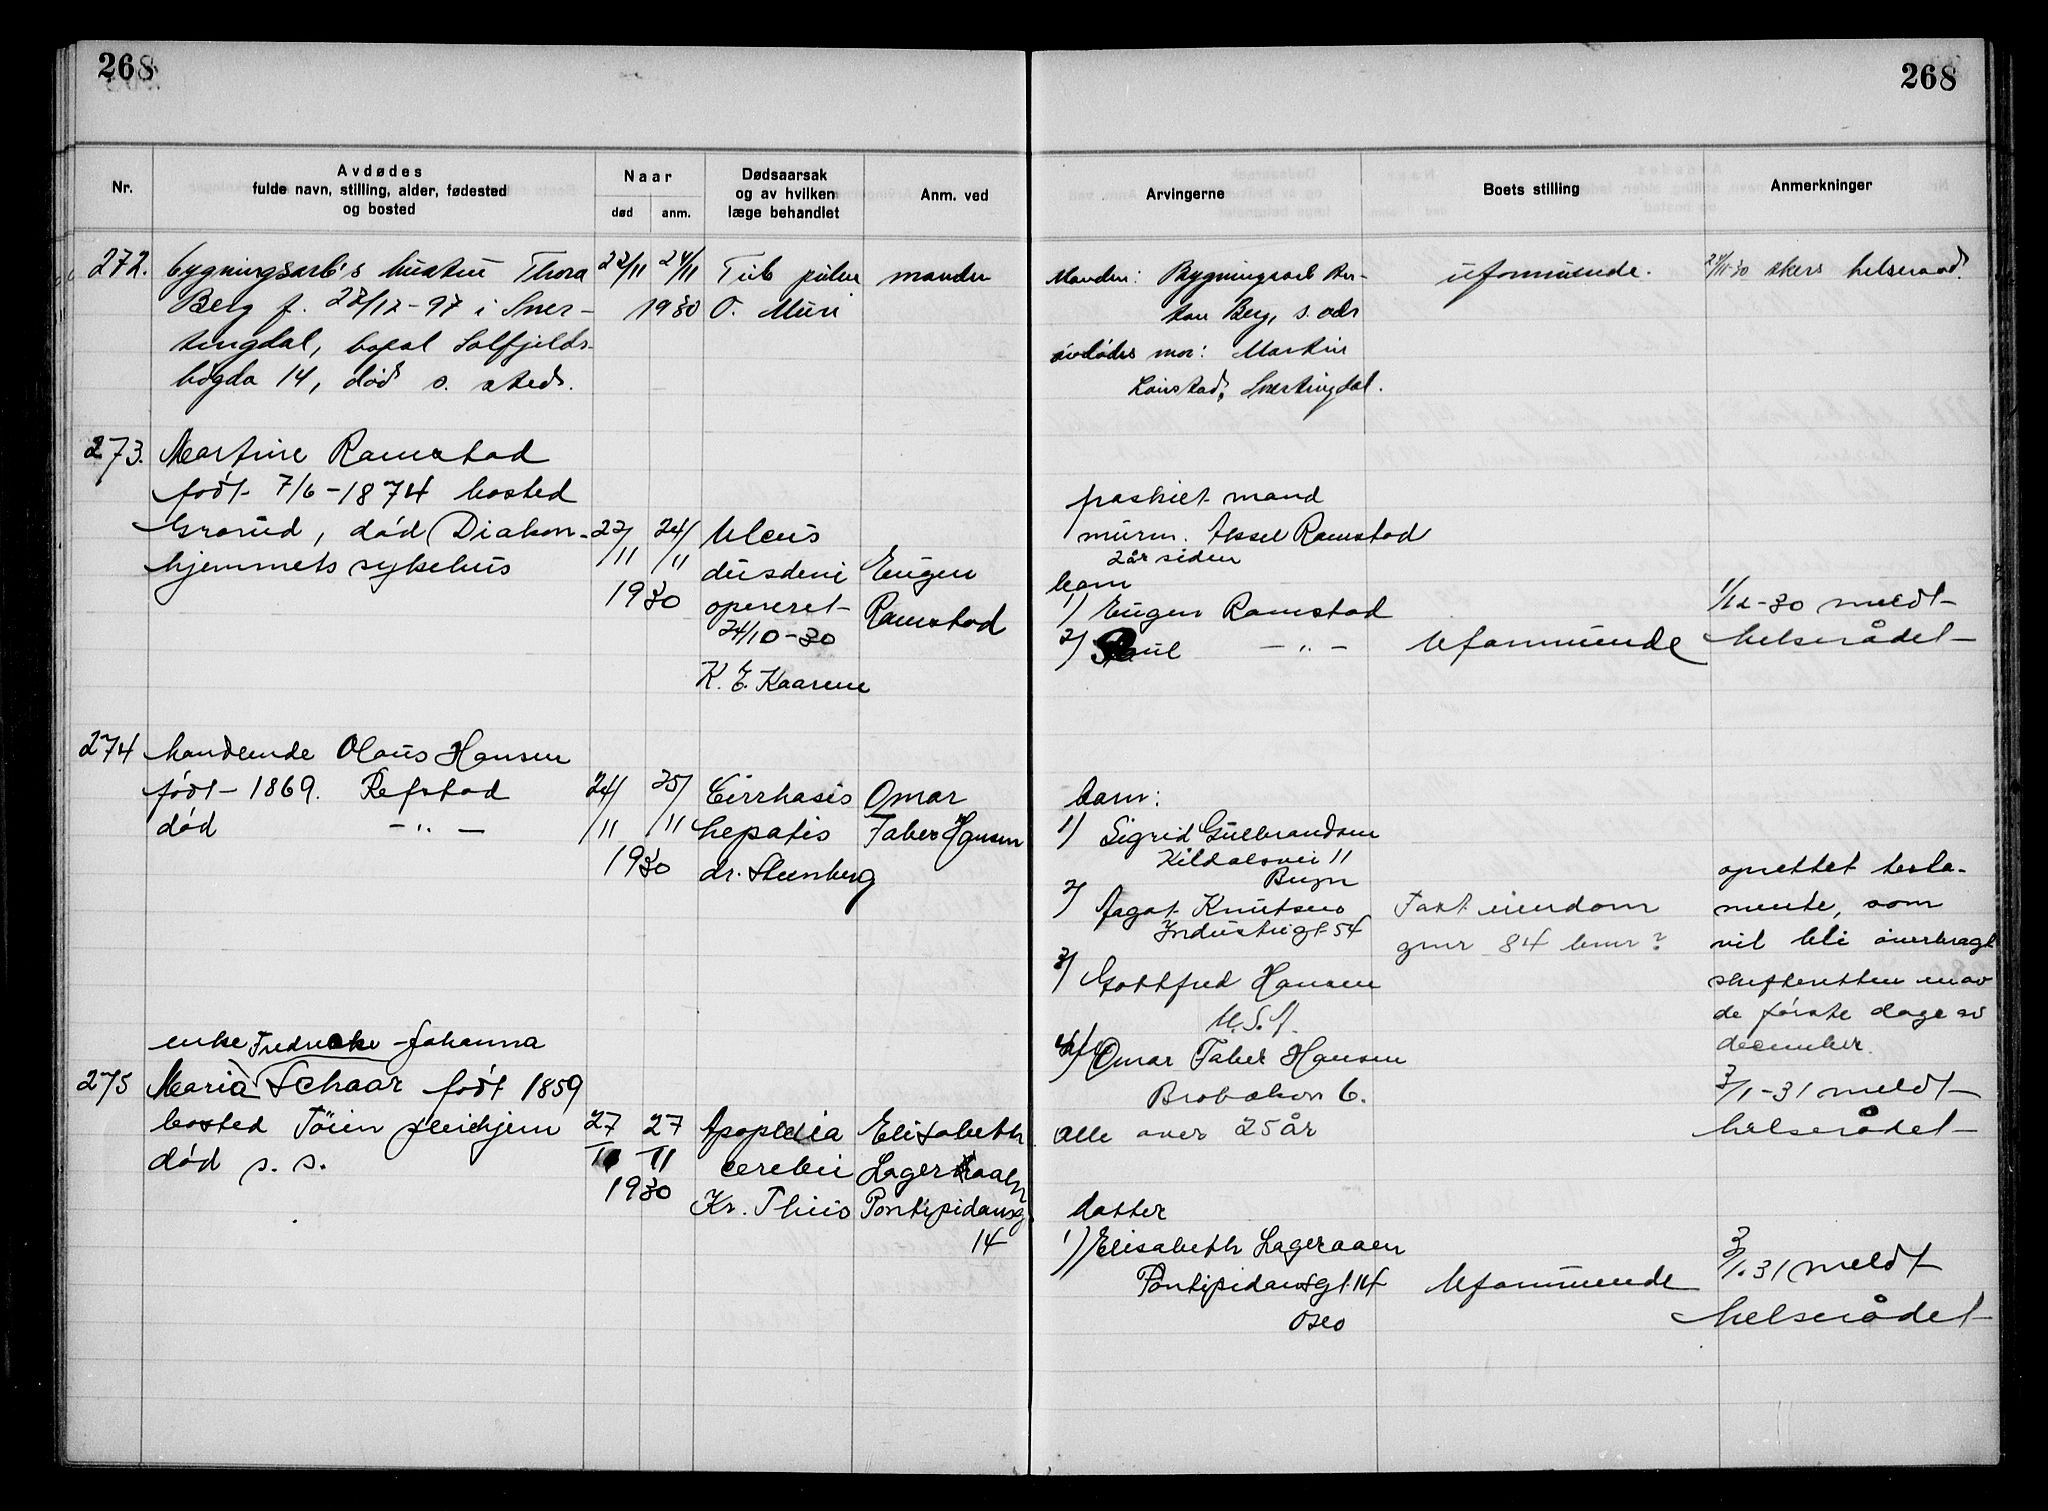 268
268
Nr.
Avdødes
fulde navn, stilling, alder, fødested
og bosted
Naar
død
anm.
Dødsaarsak
og av hvilken
læge behandlet
Anm. ved
Arvingerne
Boets stilling
Anmerkninger
272. bygningsarb's hustru Thora
Berg f. 27/12-97 i Sner-
tingdal, bopæl Solfjelds-
høgda 14, død s. sted.
22/11 24/11
1930
Tub pulm
O.
manden
Manden: Bygningsarb
Berg, s. adr
avdødes mor: Martin
Snertingdal.
uformuende.
24/11-30 Akers helseraad.
273. Martine Ramstad
født 7/6-1874 bosted
Grorud, død Diakon-
hjemmets sykehus
22/11 24/11
1930
Ulcus
duodeni
opereret
24/10-30
K. E. Kaarene
Eugen
Ramstad
fraskilt mand
murm. Aksel Ramstad
2 år siden
barn
1) Eugen Ramstad
2) Paul -"-
Uformuende
1/12-30 meldt
helserådet
274 handlende Olaus Hansen
født 1869. Refstad
død -"-
24/11 25/11
1930
Cirrhosis
hepatis
dr. Steenberg
Omar
Faber Hansen
barn:
1) Sigrid Gulbrandsen
Kildalsvei 11
Bryn
2) Aagot Knutsen
Industrigt 54
3) Gottfred Hansen
U.S.A.
4) Omar Faber Hansen
Brobekvn 6.
alle over 25 år
Fast eiendom
gnr 84 bnr ?
oprettet testa-
mente, som
vil bli overbragt
skifteretten en av
de første dage av
december.
3/1-31 meldt
helserådet
enke Fredricke Johanna
275 Maria Schaar født 1859
bosted Tøien pleiehjem
død s. s.
27/11 27/11
1930
Apoplexia
cerebri
Kr. Thiis
Elisabeth
Lageraaen
Pontopidansg
14
datter
1) Elisabeth Lageraaen
Pontopidansgt. 14
Oslo
Uformuende
3/1.31 meldt
helserådet